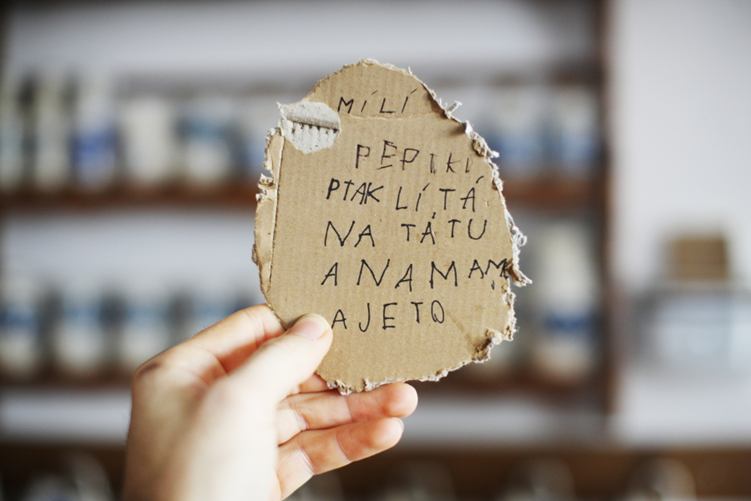 MÍLÍ
PEPIKU
PTAK LÍTÁ
NA TÁTU
A NA MAMU
A JE TO